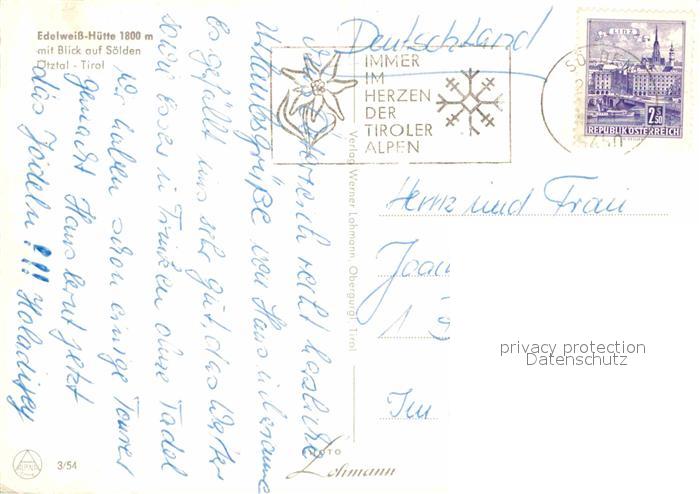 Edelweiß-Hütte 1800 m
mit Blick auf Sölden
Ötztal - Tirol
Deutschland
IMMER
IM
HERZEN
DER
TIROLER
ALPEN
LINZ
2.50
REPUBLIK ÖSTERREICH
6450
Aus Österreich recht herzliche
Urlaubsgrüße von Hans u.
Es gefällt uns sehr gut, das Wetter
sowie Essen u Trinken ohne Tadel
wir haben schon einige Touren
gemacht Hans lernt jetzt
das Jodeln!!! Holadirey
Verlag Werner Lohmann, Obergurgl, Tirol
Herrn und Frau
privacy protection
Datenschutz
FOTO
Lohmann
3/54